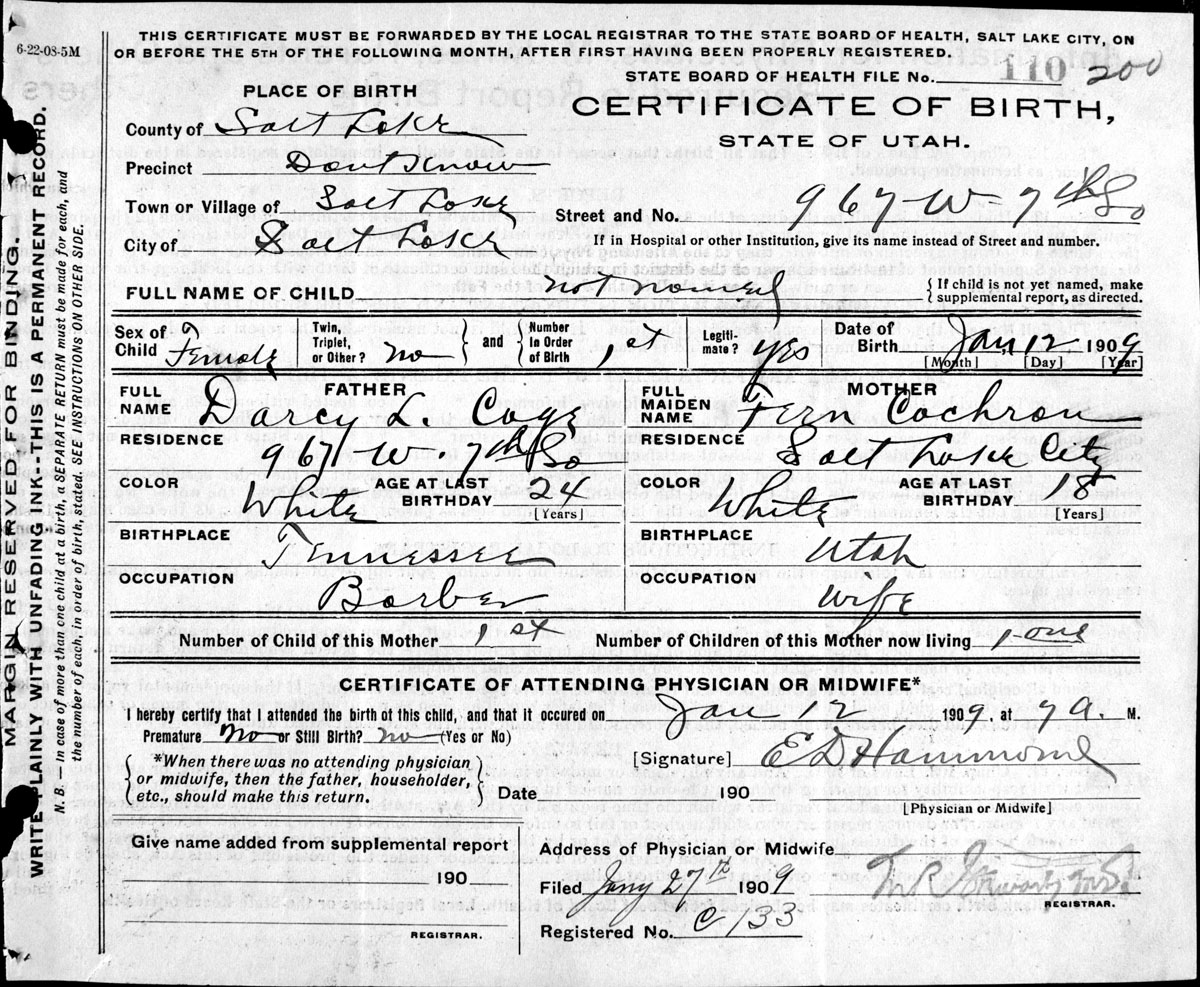 6-22-08-5M
THIS CERTIFICATE MUST BE FORWARDED BY THE LOCAL REGISTRAR TO THE STATE BOARD OF HEALTH, SALT LAKE CITY, ON
OR BEFORE THE 5TH OF THE FOLLOWING MONTH, AFTER FIRST HAVING BEEN PROPERLY REGISTERED.
STATE BOARD OF HEALTH FILE No. 110 200
PLACE OF BIRTH
CERTIFICATE OF BIRTH,
STATE OF UTAH.
County of Salt Lake
Precinct Dont Know
Town or Village of Salt Lake
Street and No. 967-W-7th So
City of Salt Lake
If in Hospital or other Institution, give its name instead of Street and number.
FULL NAME OF CHILD not named { If child is not yet named, make supplemental report, as directed.
Sex of Child Female Twin, Triplet, or Other? No } and { Number In Order of Birth 1st Legiti-mate? yes Date of Birth Jan, 12 1909
[Month] [Day] [Year]
FATHER
FULL NAME Darcy L.
RESIDENCE 967-W. 7th So
COLOR White AGE AT LAST BIRTHDAY 24 [Years]
BIRTHPLACE Tennessee
OCCUPATION Barber
MOTHER
FULL MAIDEN NAME Fern Cochran
RESIDENCE Salt Lake City
COLOR White AGE AT LAST BIRTHDAY 18 [Years]
BIRTHPLACE Utah
OCCUPATION wife
Number of Child of this Mother 1st Number of Children of this Mother now living 1-one
CERTIFICATE OF ATTENDING PHYSICIAN OR MIDWIFE*
I hereby certify that I attended the birth of this child, and that it occured on Jan 12 1909, at 7 a. M.
Premature No or Still Birth? no (Yes or No)
[Signature] E D Hammond
*When there was no attending physician
or midwife, then the father, householder,
etc., should make this return.
Date 190
[Physician or Midwife]
Give name added from supplemental report
190
REGISTRAR.
Address of Physician or Midwife
Filed Jany 27th 1909
REGISTRAR.
Registered No. C 133
MARGIN RESERVED FOR BINDING.
WRITE PLAINLY WITH UNFADING INK---THIS IS A PERMANENT RECORD.
N. B. — In case of more than one child at a birth, a SEPARATE RETURN must be made for each, and
the number of each, in order of birth, stated. SEE INSTRUCTIONS ON OTHER SIDE.